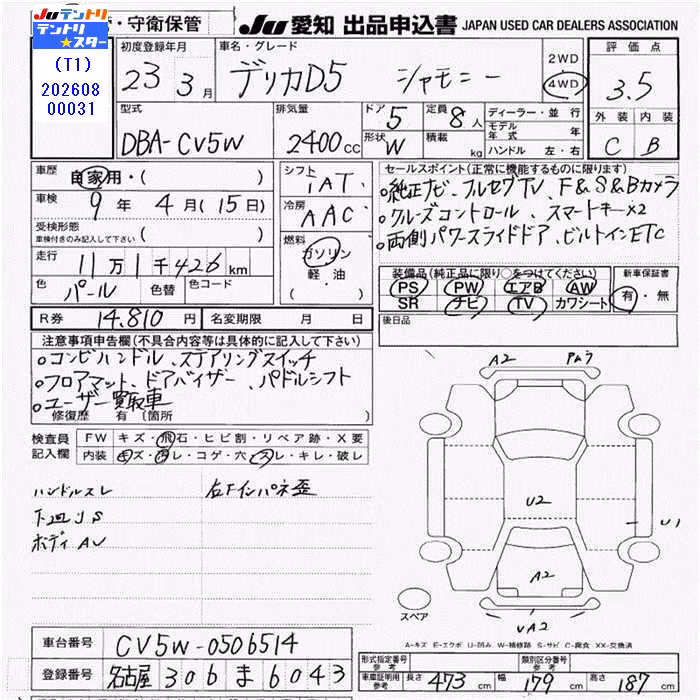 JUテントリ
テントリ★スター
(T1)
202608
00031
・守衛保管
JU 愛知 出品申込書 JAPAN USED CAR DEALERS ASSOCIATION
初度登録年月 車名・グレード
23 3月 デリカD5 シャモニー
2WD
4WD
評価点
3.5
型式 排気量 ドア 定員
DBA-CV5W 2400cc 5 8人
形状 W 積載 kg
ディーラー・並行
モデル年式 年
ハンドル 左・右
外装 内装
C B
車歴 自家用・( )
車検 9年4月(15日)
受検形態
車検付きのみ記入して下さい ( )
走行 11万1千426km
色 パール 色替 色コード
シフト
IAT
冷房
AAC
燃料
ガソリン
・軽油
・( )
セールスポイント(正常に機能するものに限ります)
○純正ナビ、フルセグTV、F&S&Bカメラ
○クルーズコントロール、スマートキー×2
○両側パワースライドドア、ビルトインETC
装備品(純正品に限り○をつけてください)
PS PW エアB AW
SR ナビ TV カワシート
新車保証書
有・無
R券 14,810円 名変期限 月 日
後日品
注意事項申告欄(不具合内容等は具体的に記入して下さい)
○コンビハンドル、ステアリングスイッチ
○フロアマット、ドアバイザー、パドルシフト
○ユーザー買取車
修復歴 有(箇所 )
検査員記入欄
FW キズ・飛石・ヒビ割・リペア跡・X要
内装 キズ・ヨゴレ・コゲ・穴・スレ・キレ・破レ
ハンドルスレ
下回りS
ボディAU
A2
U2
U1
A2
UA2
スペア
A-キズ E-エクボ U-凹み W-補修跡 S-サビ C-腐食 XX-交換済
車台番号 CV5W-0506514
登録番号 名古屋 306 ま 6043
形式指定番号 参考 類別区分番号 参考
車庫証明用 参考 長さ 473cm 幅 179cm 高さ 187cm